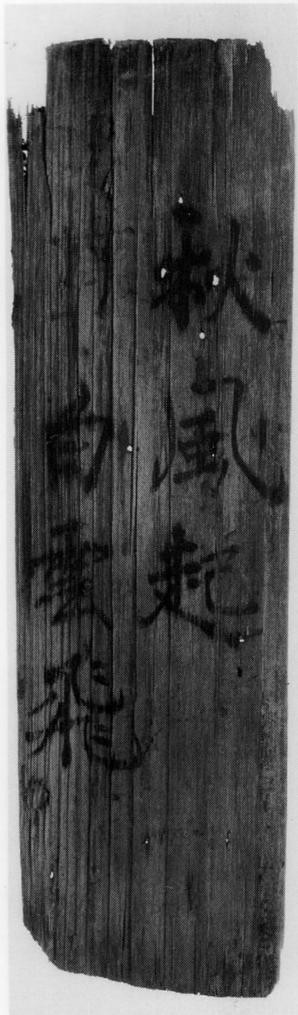 秋風起
白雲飛